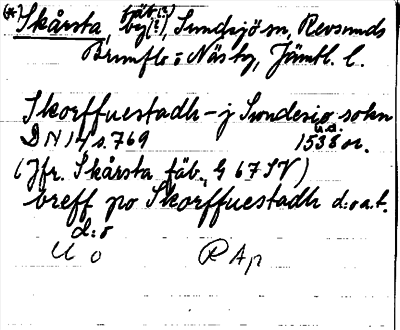 (*) Skårsta, fäb.(?) by(?), Sundsjö sn, Revsunds
Brunflo o Näsby, Jämtl. l.
Skorffuestadh - j Sundesio sokn
DN 14 s. 769 1538 u.a. or.
(Jfr. Skårsta fäb., G 67 SV)
breff po Skorffuestadh d:o a.t.
d:o
U o R Ap